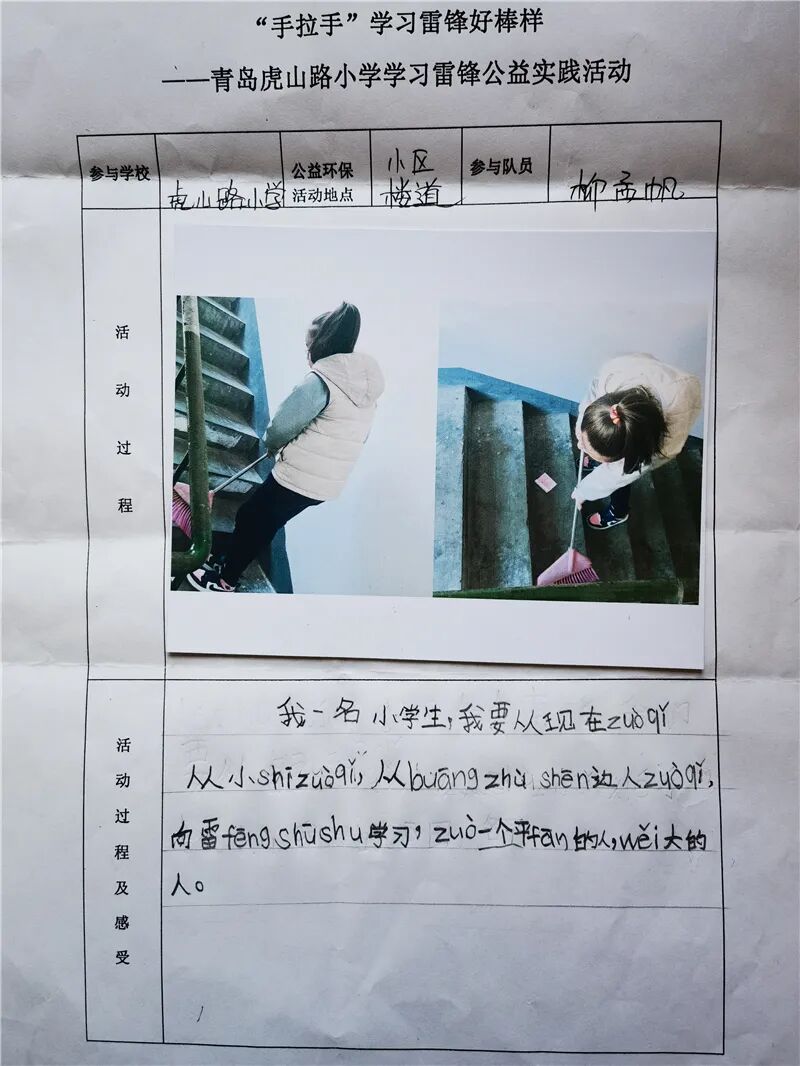 “手拉手”学习雷锋好棒样
——青岛虎山路小学学习雷锋公益实践活动
参与学校 虎山路小学 公益环保活动地点 小区楼道 参与队员 柳孟帆
活动过程
活动过程及感受
我一名小学生,我要从现在zuò qǐ
从小shì zuò qǐ,从buāng zhù shēn边人zuò qǐ,
向雷fēng shū shu学习,zuò一个平fān的人,wěi大的
人。